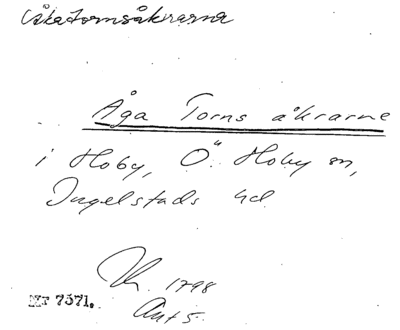 Åkatornsåkrarna
Åga Torns åkrarne
i Hoby, Ö. Hoby sn,
Ingelstads hd
1798
Akt 5.
Nr 7371.